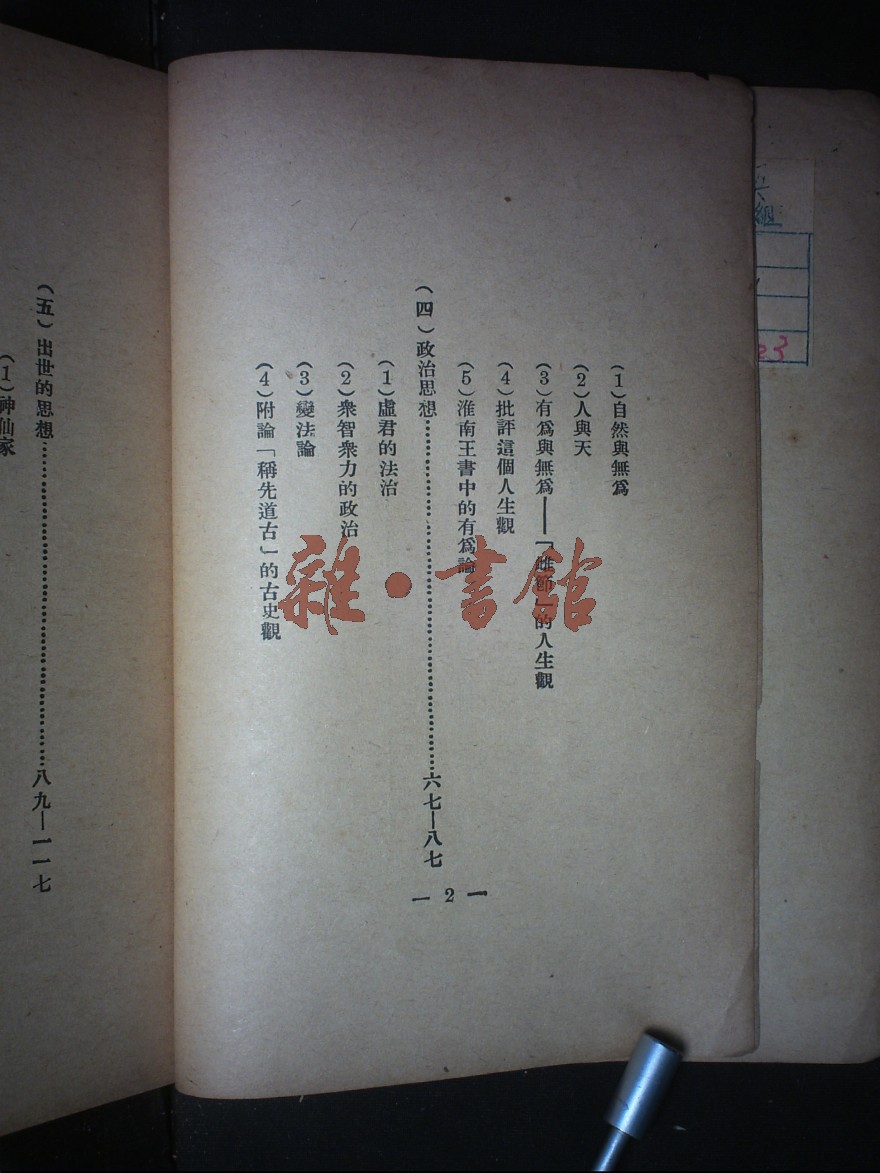 (1)自然與無爲
(2)人與天
(3)有爲與無爲——「雌節」的人生觀
(4)批評這個人生觀
(5)淮南王書中的有爲論
(四)政治思想……………………………………六七—八七
(1)虛君的法治
(2)衆智衆力的政治
(3)變法論
(4)附論「稱先道古」的古史觀
— 2 —
(五)出世的思想……………………………………八九—一一七
(1)神仙家
雜·書館